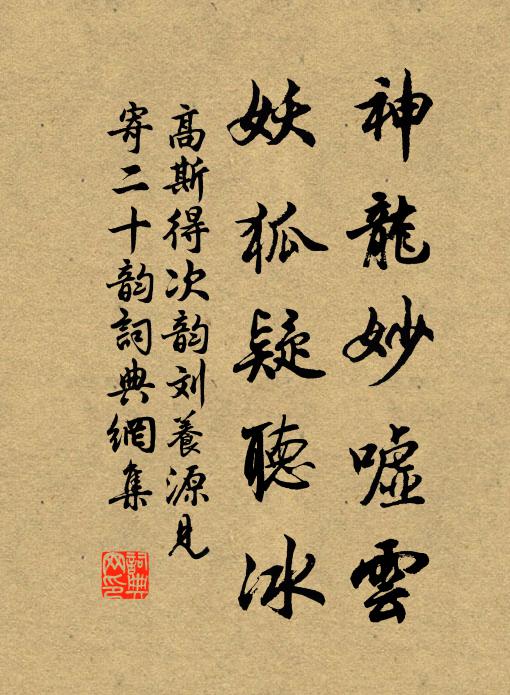 神龍妙嘘雲
妖狐疑聽冰
高斯得次韵刘養源見
寄二十韵詞典網集
詞典网印